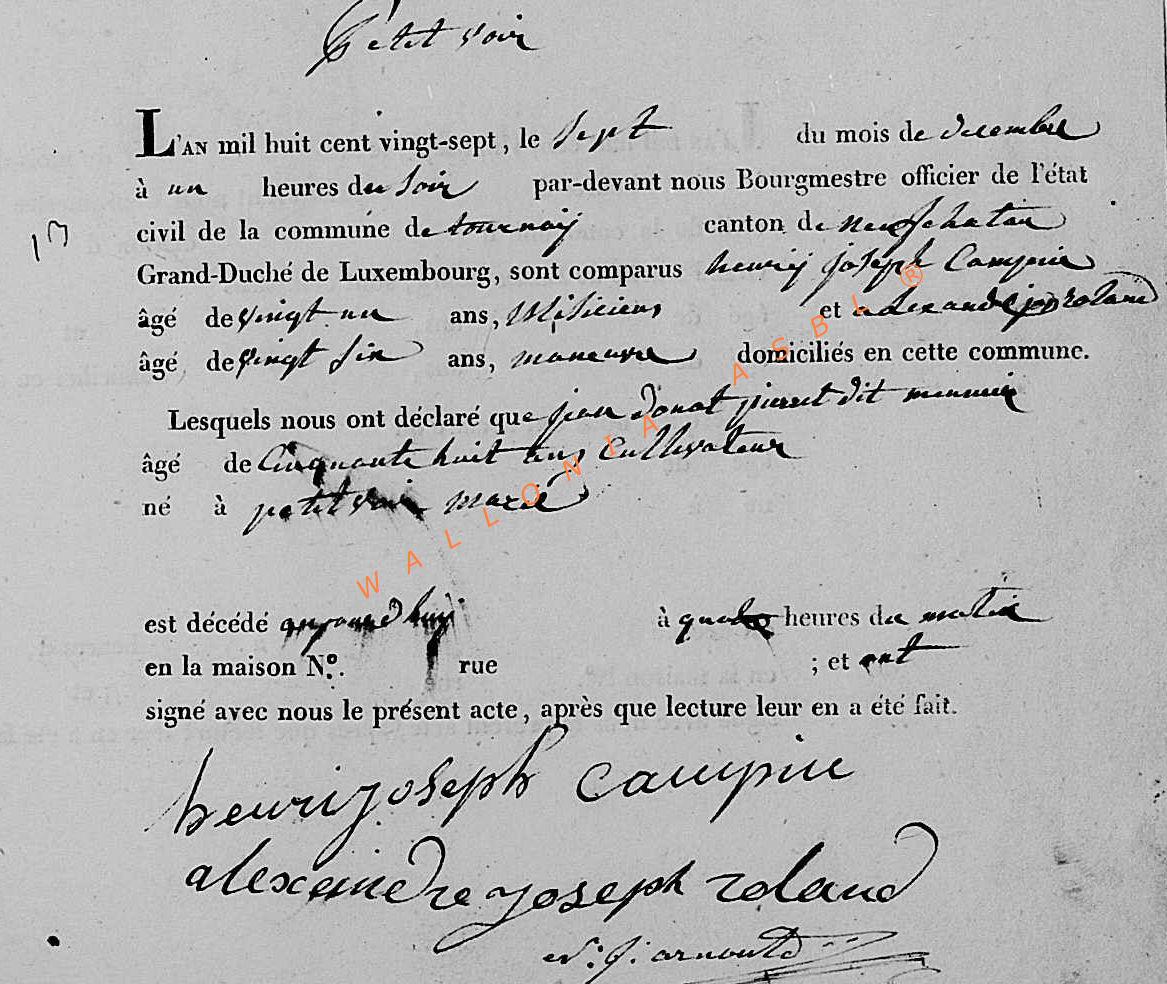 Petit voir
L'AN mil huit cent vingt-sept, le sept du mois de decembre
à un heures du soir par-devant nous Bourgmestre officier de l'état
13
civil de la commune de tournay canton de neufchateau
Grand-Duché de Luxembourg, sont comparus henrij joseph Campinie
âgé de vingt un ans, Milicien et alexandre jos roland
âgé de vingt six ans, maneuvre domiciliés en cette commune.
Lesquels nous ont déclaré que jean Donat pierret dit meunier
âgé de Cinquante huit ans Cultivateur
né à petit voir marié
est décédé aujourd'huij à quatre heures du matin
en la maison N°. rue ; et ont
signé avec nous le présent acte, après que lecture leur en a été fait.
henrij joseph campinie
alexandre joseph roland
j: arnould
WALLONIA ASBL®